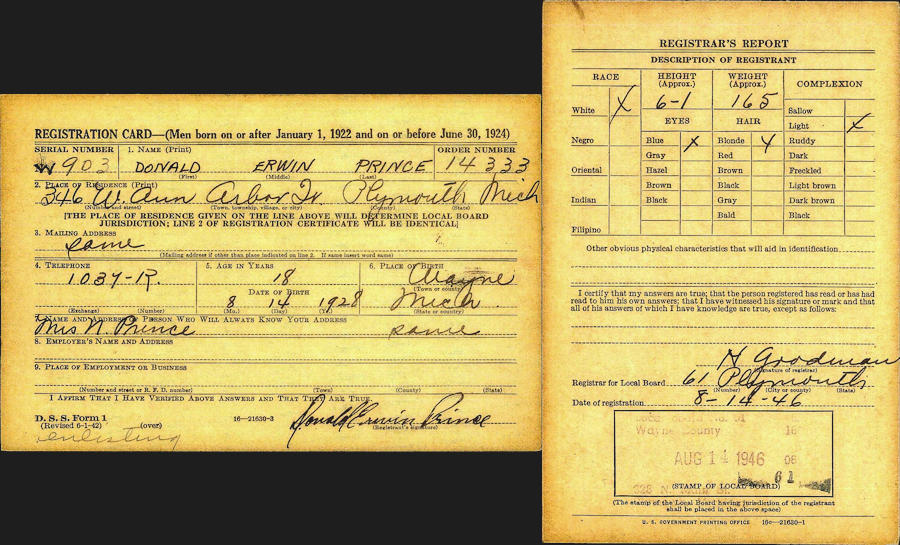 REGISTRATION CARD—(Men born on or after January 1, 1922 and on or before June 30, 1924)
SERIAL NUMBER 1. NAME (Print) ORDER NUMBER
W 903 DONALD ERWIN PRINCE 14333
(First) (Middle) (Last)
2. PLACE OF RESIDENCE (Print)
346 W. Ann Arbor Tr. Plymouth Mich
(Number and street) (Town, township, village, or city) (County) (State)
[THE PLACE OF RESIDENCE GIVEN ON THE LINE ABOVE WILL DETERMINE LOCAL BOARD
JURISDICTION; LINE 2 OF REGISTRATION CERTIFICATE WILL BE IDENTICAL]
3. MAILING ADDRESS
same
(Mailing address if other than place indicated on line 2. If same insert word same)
4. TELEPHONE 5. AGE IN YEARS 6. PLACE OF BIRTH
1037-R. 18 Wayne
DATE OF BIRTH (Town or county)
8 14 1928 Mich.
(Exchange) (Number) (Mo.) (Day) (Yr.) (State or country)
7. NAME AND ADDRESS OF PERSON WHO WILL ALWAYS KNOW YOUR ADDRESS
Mrs N. Prince same
8. EMPLOYER'S NAME AND ADDRESS
9. PLACE OF EMPLOYMENT OR BUSINESS
(Number and street or R. F. D. number) (Town) (County) (State)
I AFFIRM THAT I HAVE VERIFIED ABOVE ANSWERS AND THAT THEY ARE TRUE.
D. S. S. Form 1
(Revised 6-1-42) (over) 16—21630-3 Donald Erwin Prince
(Registrant's signature)
enlisting
REGISTRAR'S REPORT
DESCRIPTION OF REGISTRANT
RACE HEIGHT (Approx.) WEIGHT (Approx.) COMPLEXION
White X 6-1 165 Sallow
EYES HAIR Light X
Negro Blue X Blonde X Ruddy
Gray Red Dark
Oriental Hazel Brown Freckled
Brown Black Light brown
Indian Black Gray Dark brown
Bald Black
Filipino
Other obvious physical characteristics that will aid in identification
I certify that my answers are true; that the person registered has read or has had
read to him his own answers; that I have witnessed his signature or mark and that
all of his answers of which I have knowledge are true, except as follows:
N Goodman
(Signature of registrar)
Registrar for Local Board 61 Plymouth
(Number) (City or county) (State)
Date of registration 8-14-46
Wayne County 16
AUG 14 1946 06
61
(STAMP OF LOCAL BOARD)
(The stamp of the Local Board having jurisdiction of the registrant
shall be placed in the above space)
U. S. GOVERNMENT PRINTING OFFICE 16c—21630-1